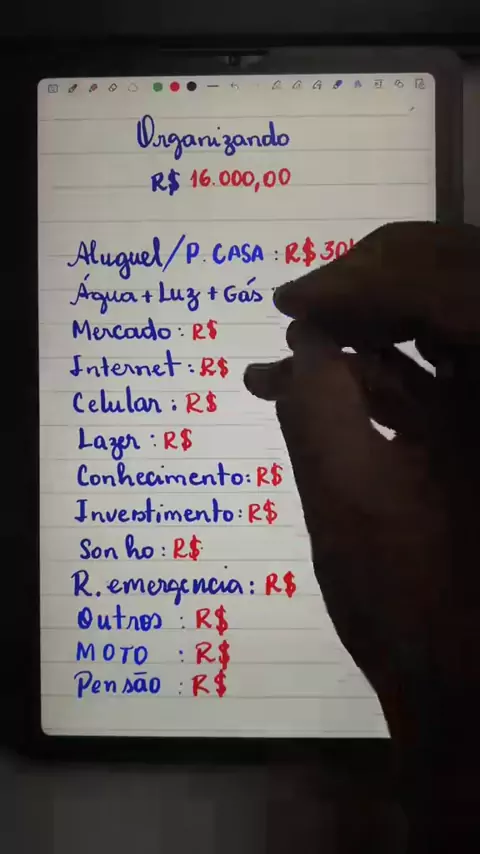 Organizando
R$ 16.000,00
Aluguel/P. CASA : R$
Água + Luz + Gás :
Mercado : R$
Internet : R$
Celular : R$
Lazer : R$
Conhecimento: R$
Investimento: R$
Sonho : R$
R. emergencia : R$
Outros : R$
MOTO : R$
Pensão : R$